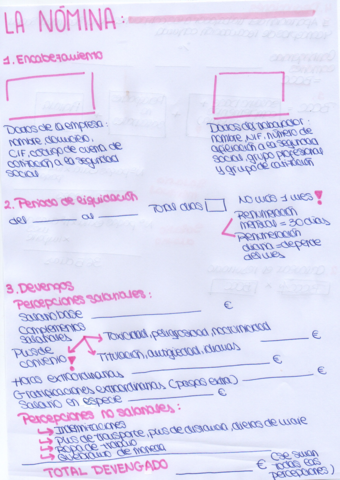 LA NÓMINA:
1. Encabezamiento
Datos de la empresa:
nombre, domicilio,
CIF, código de cuenta de
cotización a la seguridad
social
Datos del trabajador:
nombre, NIF, número de
afiliación a la seguridad
social, grupo profesional
y grupo de cotización
2. Periodo de liquidación
del al Total dias
NO MÁS 1 MES!
Remuneración
mensual = 30 días
Remuneración
diaria = depende
del mes
3. Devengos
Percepciones salariales:
Salario base €
Complementos
salariales
Toxicidad, peligrosidad, nocturnidad €
Plus de
convenio
Titulación, antigüedad, idiomas €
Horas extraordinarias €
Gratificaciones extraordinarias (pagas extra) €
Salario en especie €
Percepciones no salariales:
Indemnizaciones
Plus de transporte, plus de distancia, dietas de viaje
Ropa de trabajo
Quebranto de moneda
TOTAL DEVENGADO €
(se suman
todas las
percepciones)